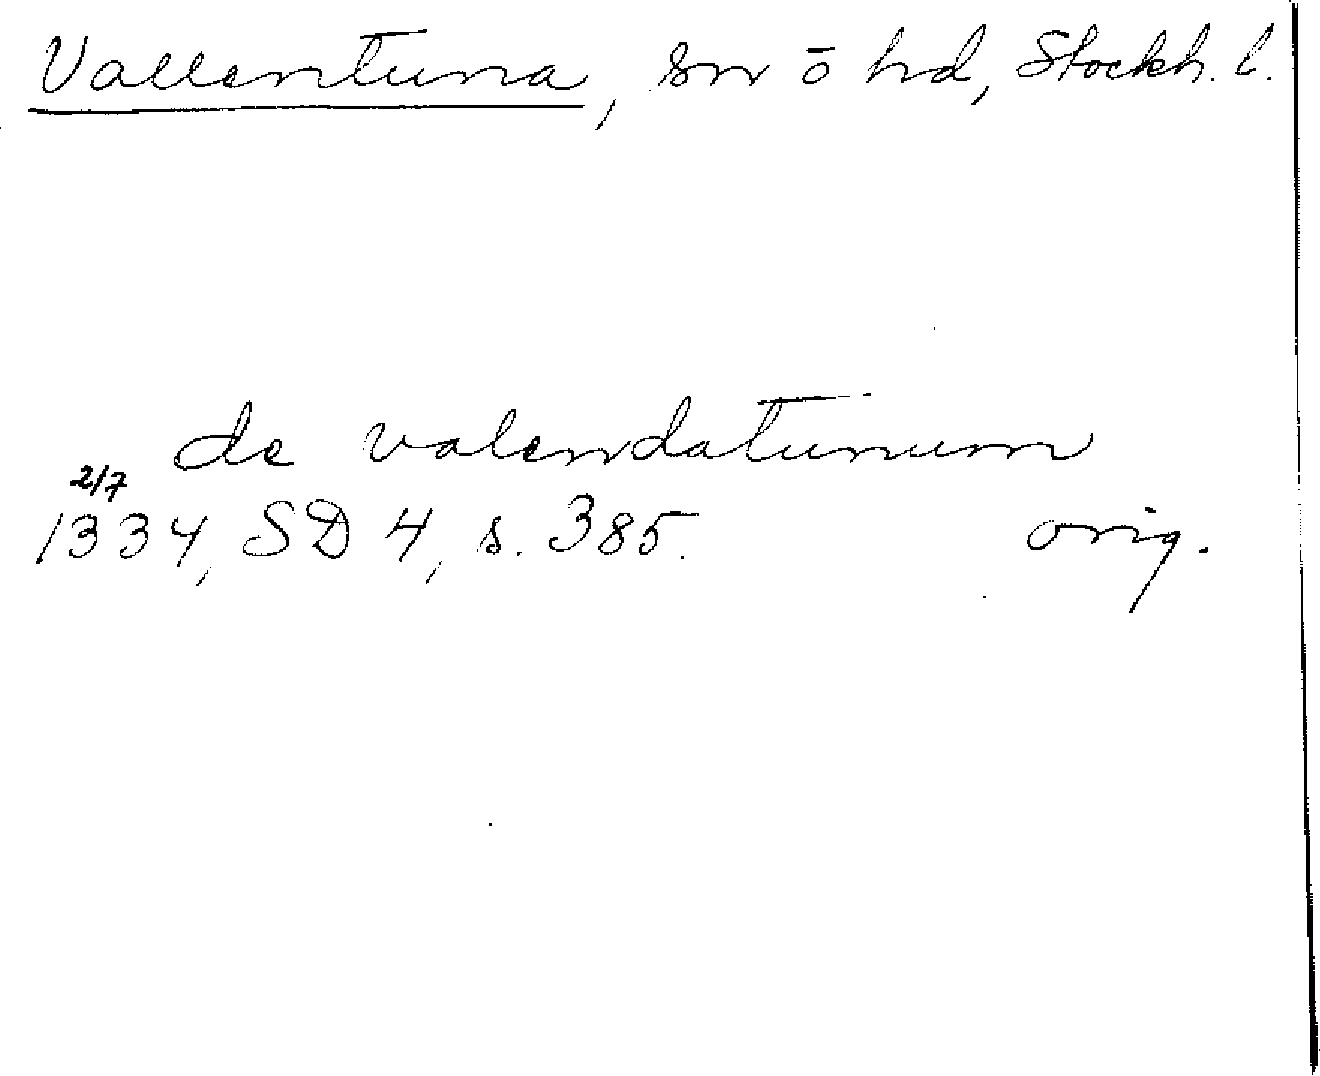 Vallentuna, sn o hd, Stockh. l.
de valendatunum
2/7
1334, SD 4, s. 385. orig.